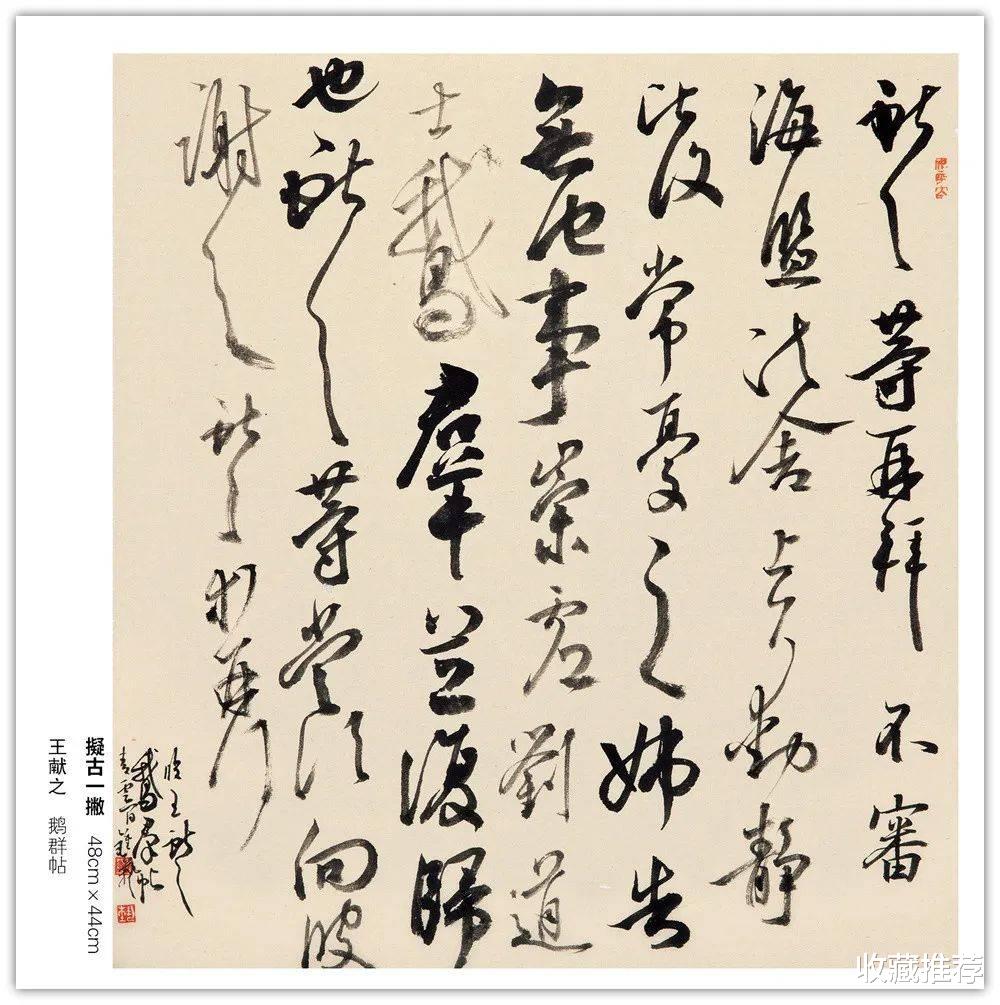 獻之等再拜不審
海鹽諸舍上下動靜
比復常憂之姊告
無他事崇虛劉道
士鵝羣並復歸
也獻之等當須向彼
謝之獻之再拜
臨王獻之
鵝羣帖
擬古一撇 48cm×44cm
王献之 鹅群帖
收藏推荐